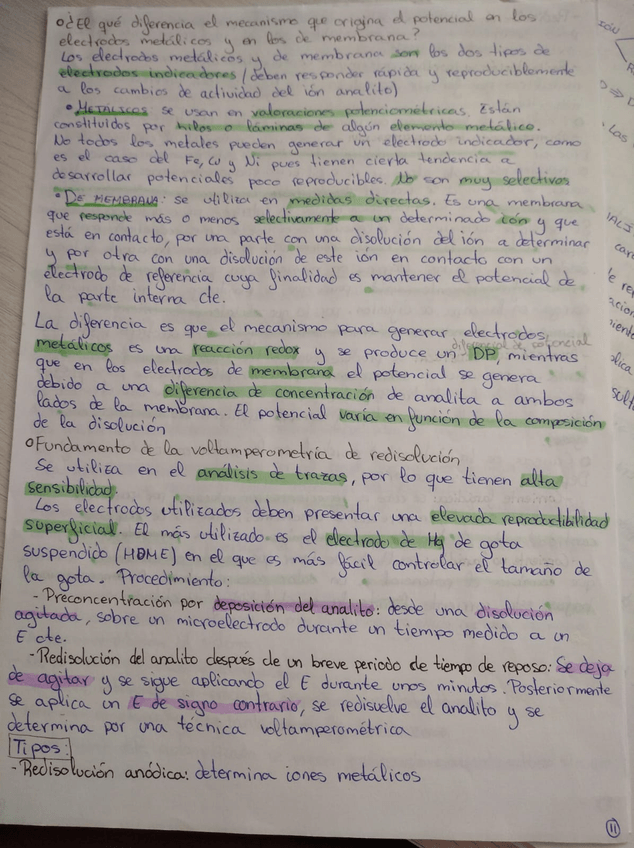 o¿El qué diferencia el mecanismo que origina el potencial en los
electrodos metálicos y en los de membrana?
Los electrodos metálicos y de membrana son los dos tipos de
electrodos indicadores (deben responder rápida y reproduciblemente
a los cambios de actividad del ión analito)
• METÁLICOS se usan en valoraciones potenciométricas. Están
constituidos por hilos o láminas de algún elemento metálico.
No todos los metales pueden generar un electrodo indicador, como
es el caso del Fe, W y Ni pues tienen cierta tendencia a
desarrollar potenciales poco reproducibles. No son muy selectivos
• DE MEMBRANA: se utiliza en medidas directas. Es una membrana
que responde más o menos selectivamente a un determinado ión y que
está en contacto, por una parte con una disolución del ión a determinar
y por otra con una disolución de este ión en contacto con un
electrodo de referencia cuya finalidad es mantener el potencial de
la parte interna cte.
La diferencia es que el mecanismo para generar electrodos
diferencia de potencial
metálicos es una reacción redox y se produce un DP, mientras
que en los electrodos de membrana el potencial se genera
debido a una diferencia de concentración de analita a ambos
lados de la membrana. El potencial varía en función de la composición
de la disolución
o Fundamento de la voltamperometría de redisolución
Se utiliza en el análisis de trazas, por lo que tienen alta
sensibilidad.
Los electrodos utilizados deben presentar una elevada reproductibilidad
superficial. El más utilizado es el electrodo de Hg de gota
suspendido (HDME) en el que es más fácil controlar el tamaño de
la gota. Procedimiento:
- Preconcentración por deposición del analito: desde una disolución
agitada, sobre un microelectrodo durante un tiempo medido a un
E cte.
- Redisolución del analito después de un breve periodo de tiempo de reposo: Se deja
de agitar y se sigue aplicando el E durante unos minutos. Posteriormente
se aplica un E de signo contrario, se redisuelve el analito y se
determina por una técnica voltamperométrica
Tipos:
- Redisolución anódica: determina iones metálicos
11